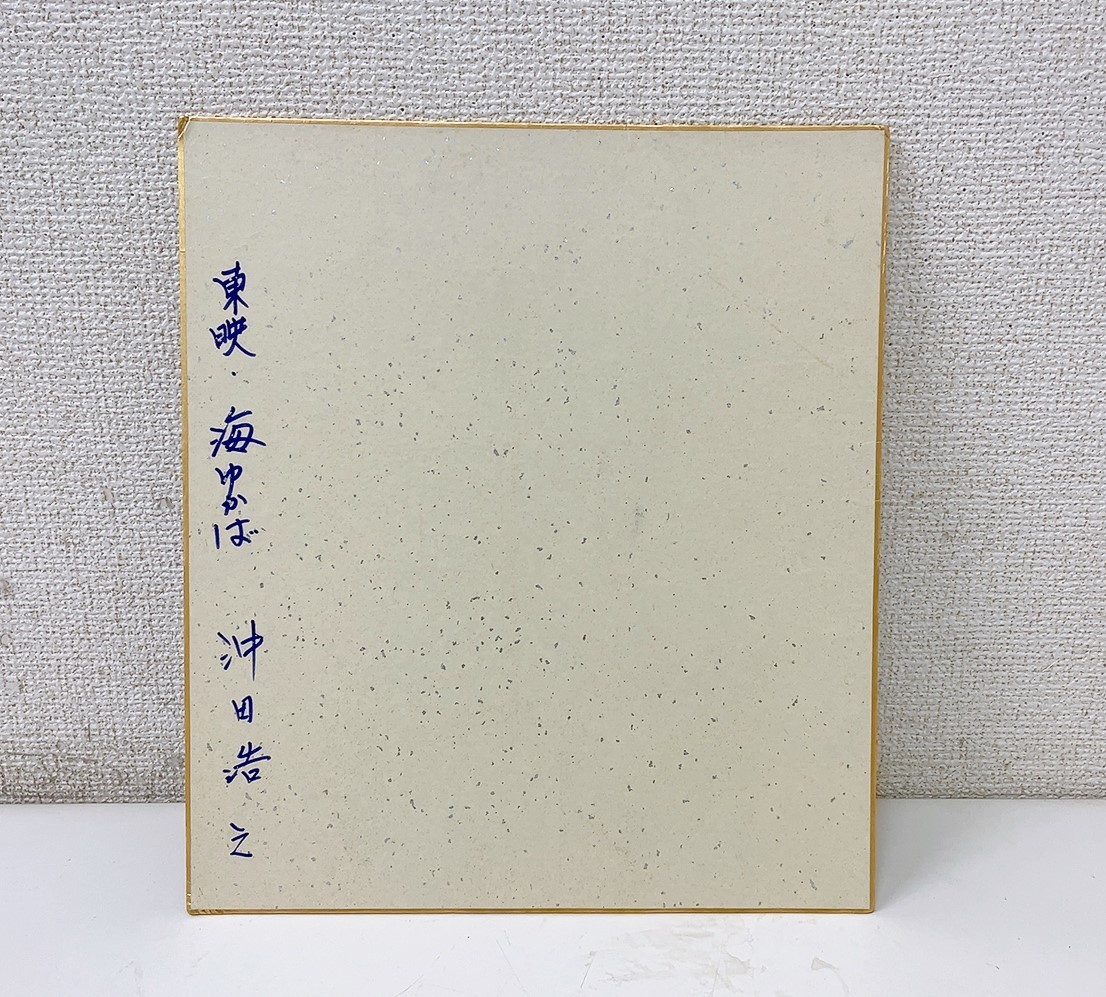 東映・海ゆかば 沖田浩之